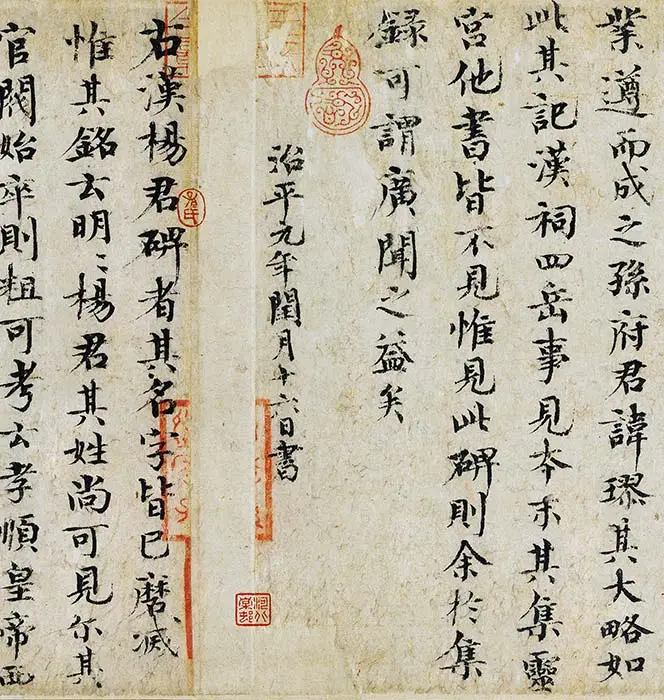 業遵而成之孫府君諱璆其大略如
此其記漢祠四岳事見夲末其集靈
宮他書皆不見惟見此碑則余於集
録可謂廣聞之益矣
治平元年閏月十六日書
右漢楊君碑者其名字皆已磨滅
惟其銘云明〻楊君其姓尚可見尔其
官閥始卒則粗可考云孝順皇帝西